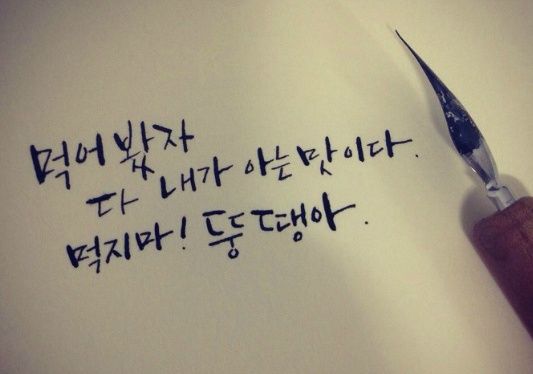 먹어 봤자
다 내가 아는 맛이다.
먹지마! 뚱땡아.